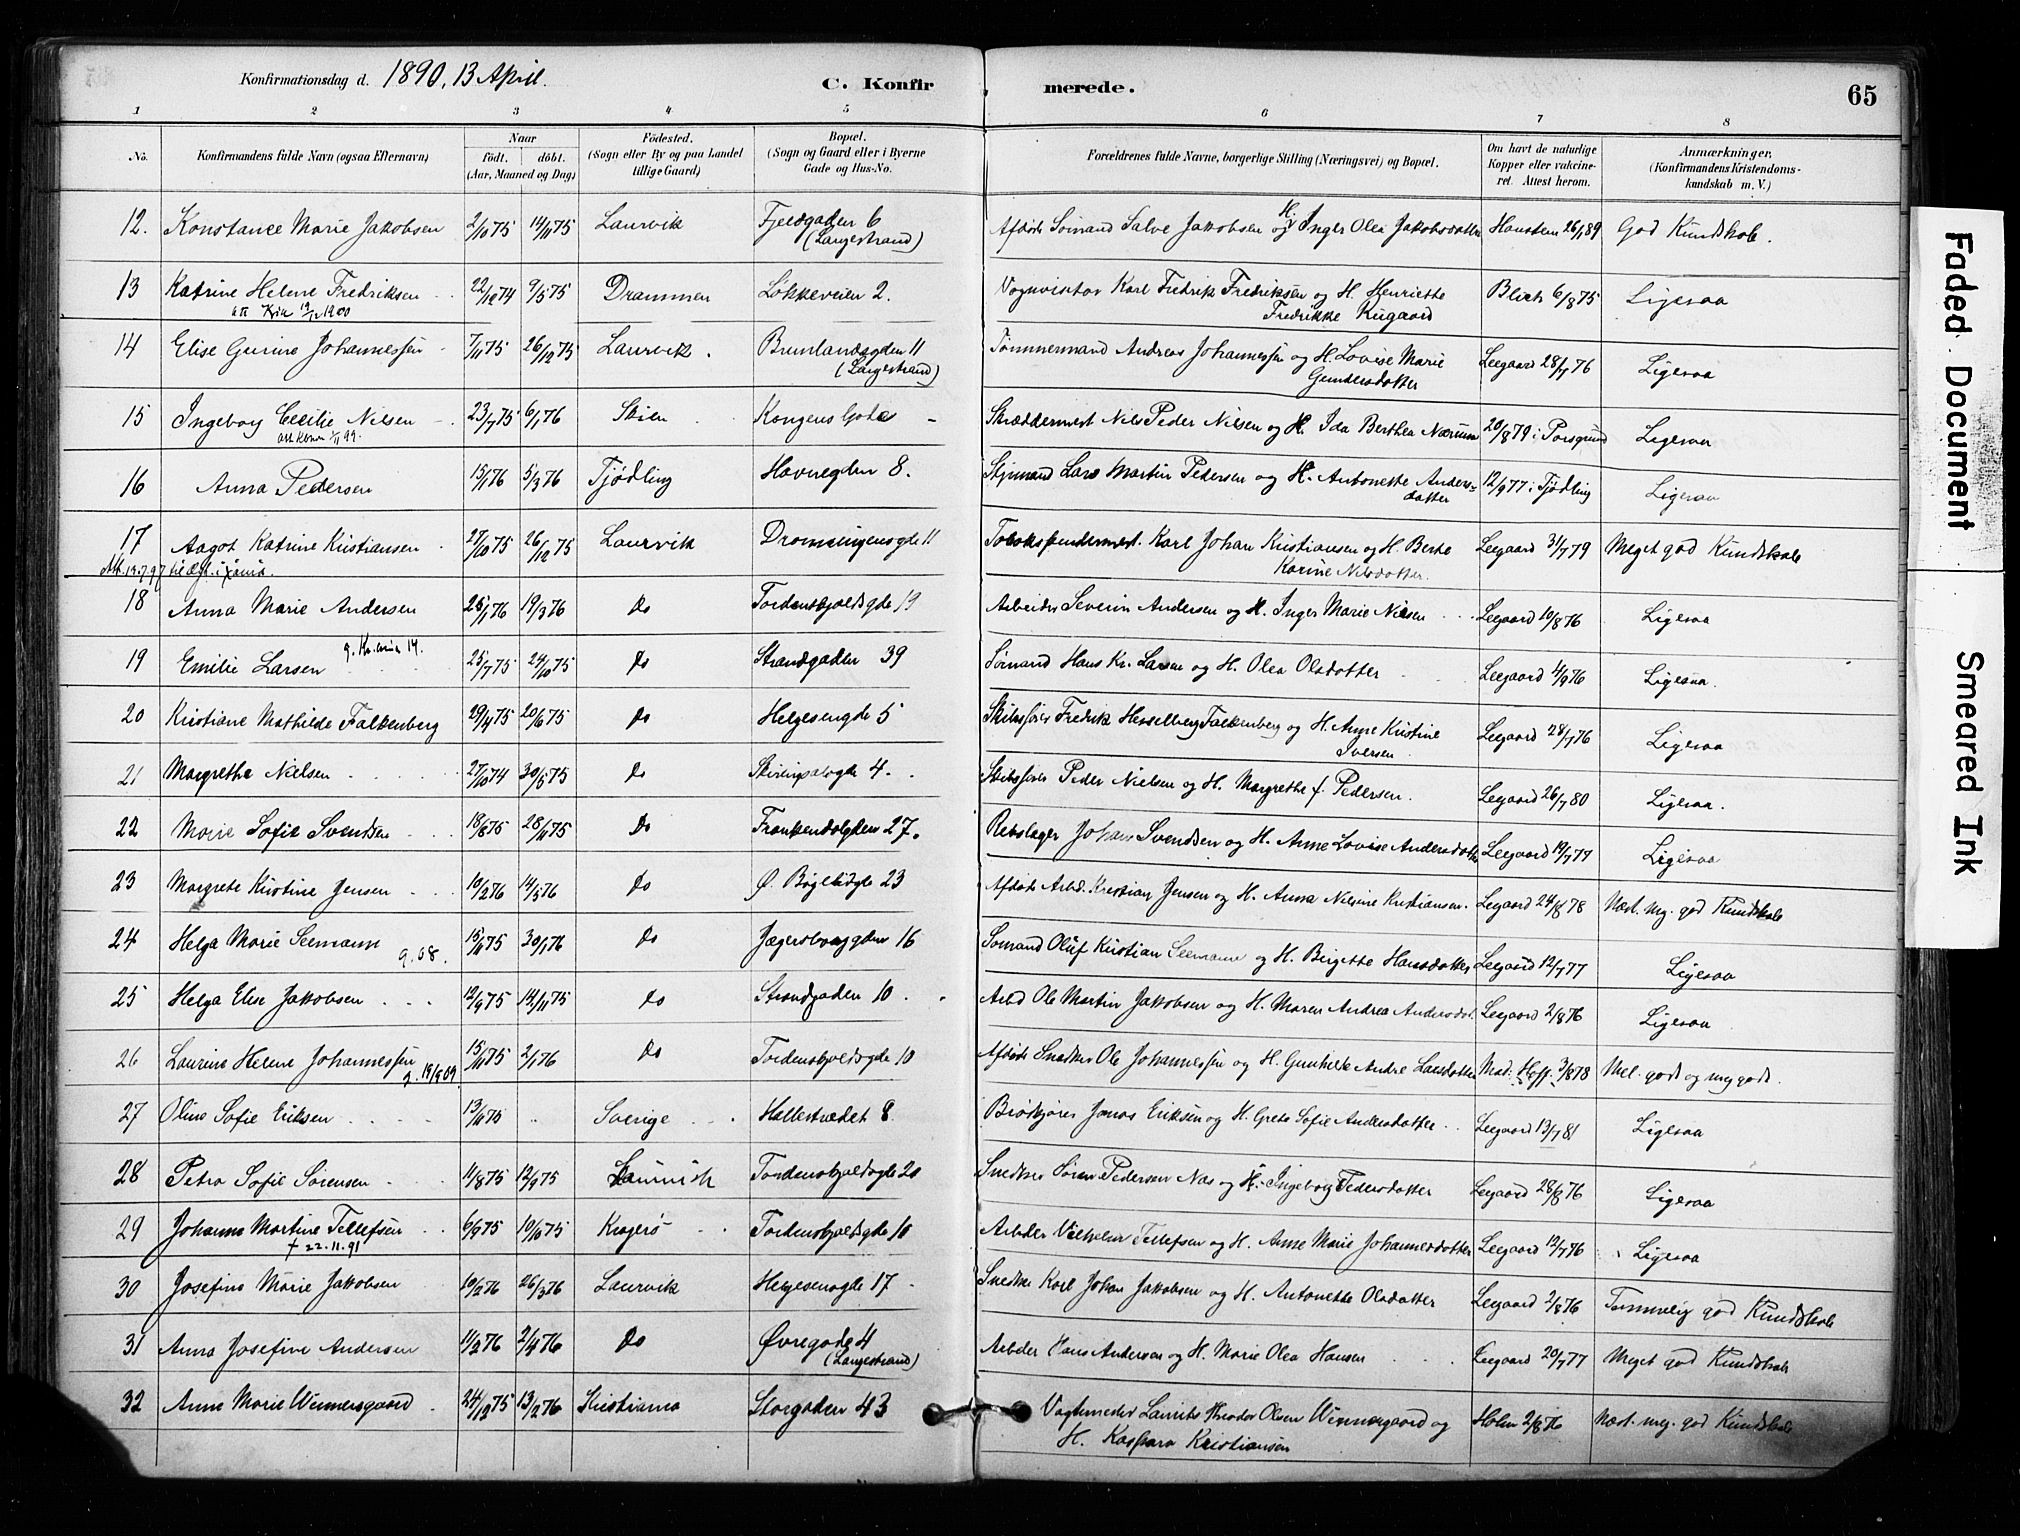 Konfirmationsdag d. 1890, 13 April. C. Konfirmerede. 65
1 2 3 4 5 6 7 8
No. Konfirmandens fulde Navn (ogsaa Efternavn) Naar født. døbt. (Aar, Maaned og Dag) Fødested. (Sogn eller By og paa Landet tillige Gaard) Bopæl. (Sogn og Gaard eller i Byerne Gade og Hus-No. Forældrenes fulde Navne, borgerlige Stilling (Næringsvei) og Bopæl. Om havt de naturlige Kopper eller vakcineret. Attest herom. Anmærkninger. (Konfirmandens Kristendomskundskab m. V.)
12. Konstance Marie Jakobsen 2/10 75 14/11 75 Laurvik Fjeldgaden 6 (Langestrand) Afdøde Sømand Salve Jakobsen og H. Inger Olea Jakobsdatter 26/1 89 God Kundskab.
13 Katrine Helene Fredriksen 22/12 74 9/5 75 Drammen Løkkeveien 2. Vognvisitør Karl Fredrik Fredriksen og H. Henriette Fredrikke Blich 6/8 75 Ligesaa
14 Elise Gurine Johannessen 7/11 75 26/12 75 Laurvik. Brunlandsgden 11 (Langestrand) Tømmermand Andreas Johannessen og H. Lovise Marie Gundersdatter Leegaard 28/7 76 Ligesaa
15 Ingeborg Cecilie Nielsen 23/7 75 6/1 76 Skien Kongens Gade Skræddermest Nils Peder Nielsen og H. Ida Berthea 20/8 79 i Porsgrund Ligesaa
16 Anna Pedersen 15/1 76 5/3 76 Tjødling Havnegden 8. Lars Martin Pedersen og H. Antonette Andersdatter 12/9 77 i Tjødling Ligesaa
17 Aagot Katrine Kristiansen 27/10 75 26/12 75 Laurvik Dronningensgde 11 Tobakspindermest. Karl Johan Kristiansen og H. Berte Karine Nilsdatter. Leegaard 31/7 79 Meget god Kundskab
18 Anna Marie Andersen 25/1 76 19/3 76 Do Tordenskjoldsgde 19 Arbeider Severin Andersen og H. Inger Marie Nilsen Leegaard 10/8 76 Ligesaa
19 Emilie Larsen 25/7 75 24/10 75 Do Strandgaden 39 Sømand Hans Kr. Larsen og H. Olea Olsdatter Leegaard 4/9 76 Ligesaa.
20 Kristiane Mathilde Falkenberg 29/4 75 20/6 75 Do Helgesengde 5 Skibsfører Fredrik Hesselberg Falkenberg og H. Anne Kristine Iversen Leegaard 28/7 76 Ligesaa
21 Margrethe Nielsen 27/10 74 30/5 75 Do Skiringsalsgde 4. Skibsfører Peder Nielsen og H. Margrethe f. Pedersen. Leegaard 26/7 80 Ligesaa.
22 Marie Sofie Svendsen 18/8 75 28/11 75 Do Frankendalgden 27. Rebslager Johan Svendsen og H. Anne Lovise Andersdatter Leegaard 19/7 77 Ligesaa
23 Margrete Kristine Jensen 10/2 76 14/5 76 Do Ø. Bøgelidgde 23 Afdøde Arbd. Kristian Jensen og H. Anna Nilsine Kristiansen. Leegaard 24/8 78 Næst. meg. god Kundskab
24 Helga Marie Seemann g. 08. 15/11 75 30/1 76 Do Jægersborggden 16 Sømand Oluf Kristian Seemann og H. Birgette Hansdatter Leegaard 12/7 77 Ligesaa
25 Helga Elise Jakobsen 12/9 75 14/11 75 Do Strandgaden 10. Arbd Ole Martin Jakobsen og H. Maren Andrea Andersdat. Leegaard 2/8 76 Ligesaa
26 Laurine Helene Johannessen g. 19/9 09 15/11 75 2/1 76 Do Tordenskjoldsgde 10 Afdøde Snedker Ole Johannessen og H. Gunhilde Andre Larsdatter Mad. Hoff. 3/8 78 Mel. godt og meg godt.
27 Oline Sofie Eriksen 13/11 75 .. Sverige Hallestrædet 8. Jonas Eriksen og H. Grete Sofie Andersdatter Leegaard 13/7 81 Ligesaa
28 Petra Sofie Sørensen 11/8 75 12/9 75 Laurvik Tordenskjoldsgde 20 Snedker Søren Pedersen Næs og H. Ingeborg Pedersdatter Leegaard 28/8 76 Ligesaa
29 Johanne Martine Tellefsen † 22.11.91 6/9 75 10/10 75 Kragerø Tordenskjoldsgde 10 Arbeider Vilhelm Tellefsen og H. Anne Marie Johannesdatter Leegaard 12/7 76 Ligesaa
30 Josefine Marie Jakobsen 10/2 76 26/3 76 Laurvik Helgesensgde 17 Snedker Karl Johan Jakobsen og H. Antonette Olsdatter Leegaard 2/8 76 Temmelig god Kundskab
31 Anna Josefine Andersen 11/2 76 2/4 76 Do Øvregade 4 (Langestrand) Arbeider Hans Andersen og H. Marie Olea Hansen Leegaard 20/7 77 Meget god Kundskab
32 Anne Marie Winnersgaard 24/12 75 13/2 76 Kristiania Storgaden 43 Laurits Theodor Olsen Winnersgaard og H. Kaspara Kristiansen Holm 2/8 76 Næst. meg. god Kundskab
Faded Document
Smeared Ink